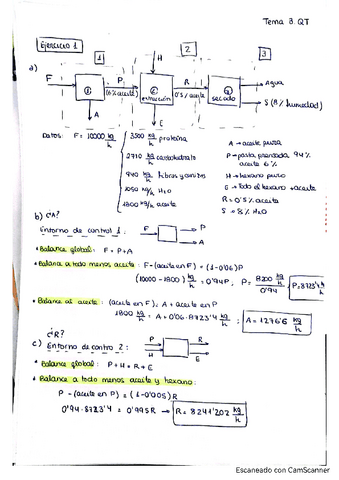 Tema 3. QT
Ejercicio 1
1 2 3
a)
F P H R Agua
(6% aceite) extracción 0'5% aceite secado S (8% humedad)
A E
Datos: F = 10000 kg/h
3500 kg/h proteína
2710 kg/h carbohidrato
940 kg/h fibras y
1050 kg/h H2O
1800 kg/h aceite
A → aceite pura
P → pasta prensada 94%
aceite 6%
H → hexano puro
E → Todo el hexano + aceite
R → 0'5% aceite
S → 8% H2O
b) ¿A?
Entorno de control 1:
F P
A
• Balance global: F = P + A
• Balance a todo menos aceite: F - (aceite en F) = (1-0'06)P
(10000 - 1800) kg/h = 0'94P, P = 8200 kg/h / 0'94 P = 8723'4 kg/h
• Balance al aceite: (aceite en F) = A + aceite en P
1800 kg/h = A + 0'06 · 8723'4 kg/h ; A = 1276'6 kg/h
¿R?
c) Entorno de contro 2:
P R
H E
• Balance global: P + H = R + E
• Balance a todo menos aceite y hexano:
P - (aceite en P) = (1-0'005)R
0'94 · 8723'4 = 0'995R → R = 8241'202 kg/h
Escaneado con CamScanner